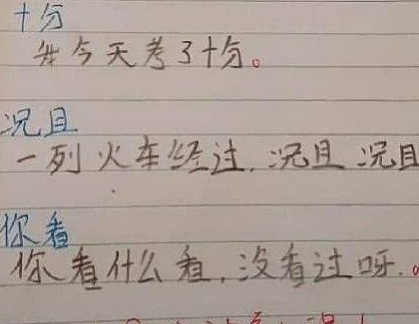 十分
今天考了十分。
况且
一列火车经过,况且 况且
你看
你看什么看,没看过呀。